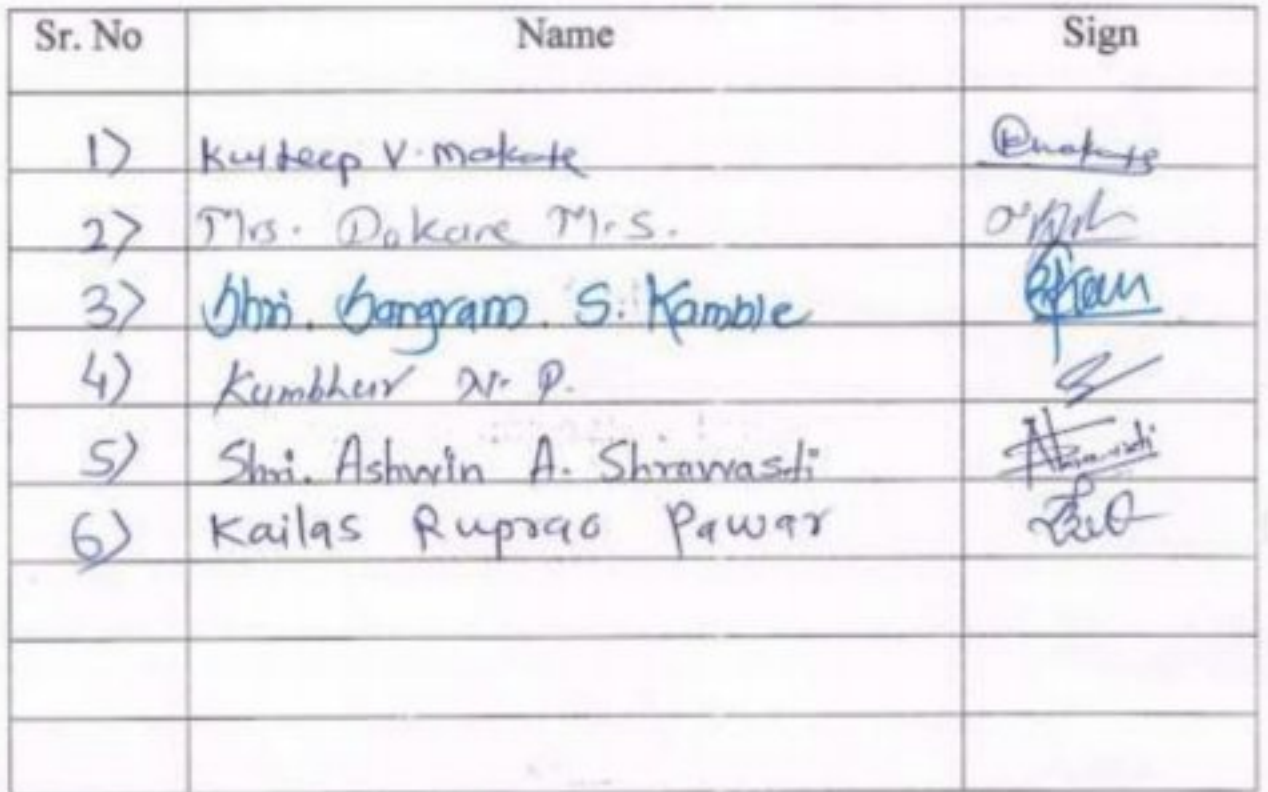 Sr. No Name Sign
1) Kuldeep V. Makote
2) Mrs. Dokare M.S.
3) Shri. Sangram. S. Kamble
4) Kumbhur N. P.
5) Shri. Ashwin A. Shrawasti
6) Kailas Ruprao Pawar